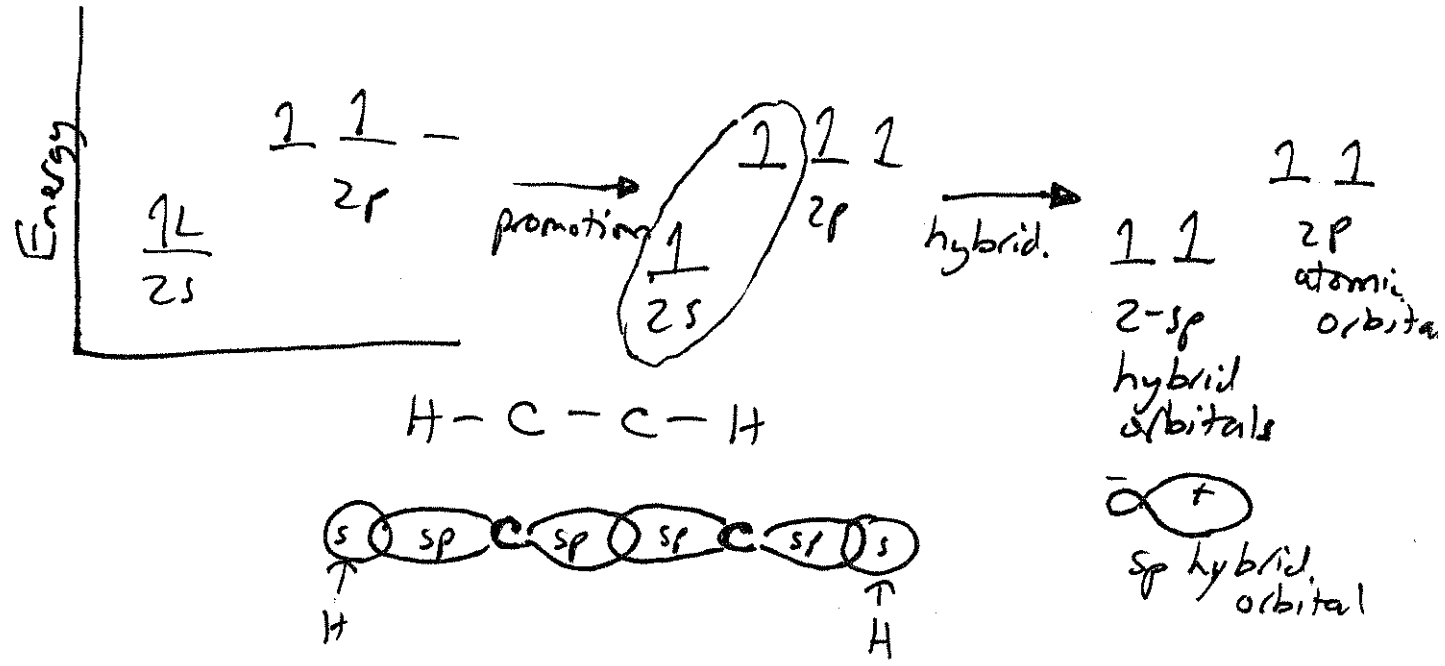 Energy
1L
2s
1 1 –
2p
promotion
1
2s
1 1 1
2p
hybrid.
1 1
2-sp
hybrid
orbitals
1 1
2p
atomic
orbita
H - C - C - H
s sp C sp sp C sp s
H
H
- +
sp hybrid.
orbital